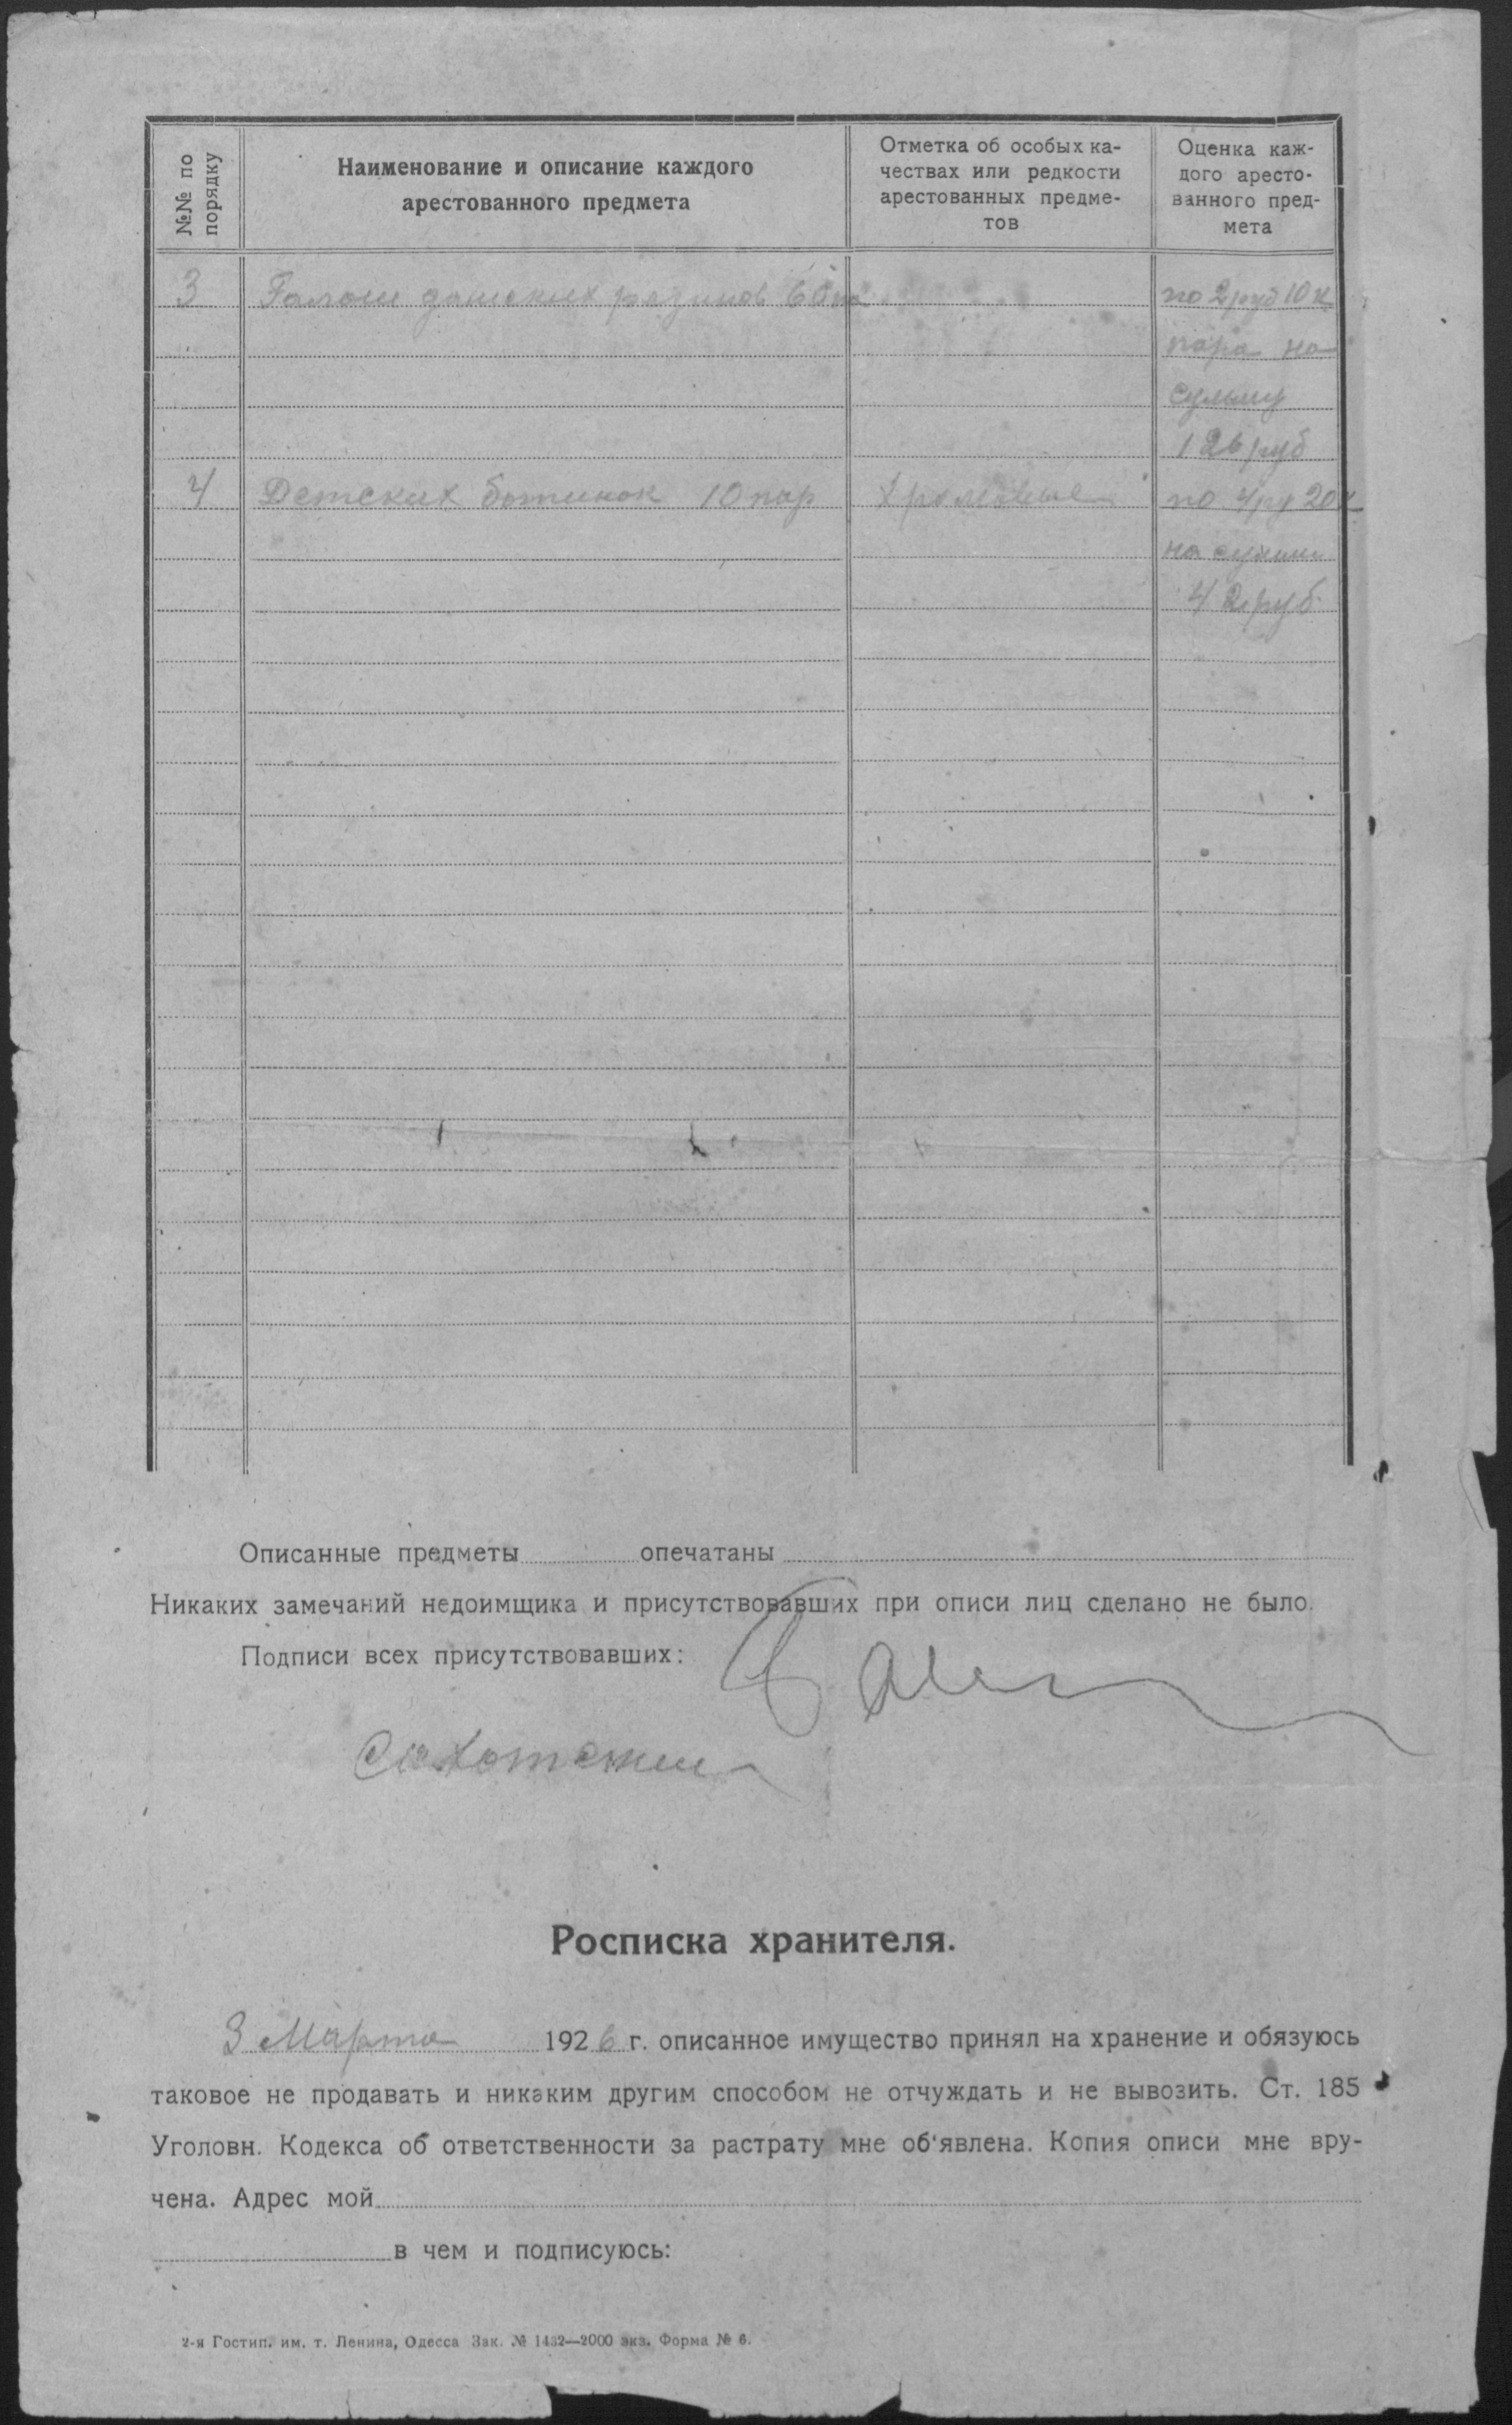 №№ по порядку
Наименование и описание каждого
арестованного предмета
Отметка об особых ка-
чествах или редкости
арестованных предме-
тов
Оценка каж-
дого аресто-
ванного пред-
мета
3 Галош дамских резинов 60 па по 2 руб 10 к
пара на
сумму
126 руб
4 Детских ботинок 10 пар хромовые по 4 ру 20 к
на сумму
42 руб
Описанные предметы опечатаны
Никаких замечаний недоимщика и присутствовавших при описи лиц сделано не было.
Подписи всех присутствовавших:
Росписка хранителя.
3 Марта 1926 г. описанное имущество принял на хранение и обязуюсь
таковое не продавать и никаким другим способом не отчуждать и не вывозить. Ст. 185
Уголовн. Кодекса об ответственности за растрату мне об'явлена. Копия описи мне вру-
чена. Адрес мой
в чем и подписуюсь:
2-я Гостип. им. т. Ленина, Одесса Зак. № 1432—2000 экз. Форма № 6.